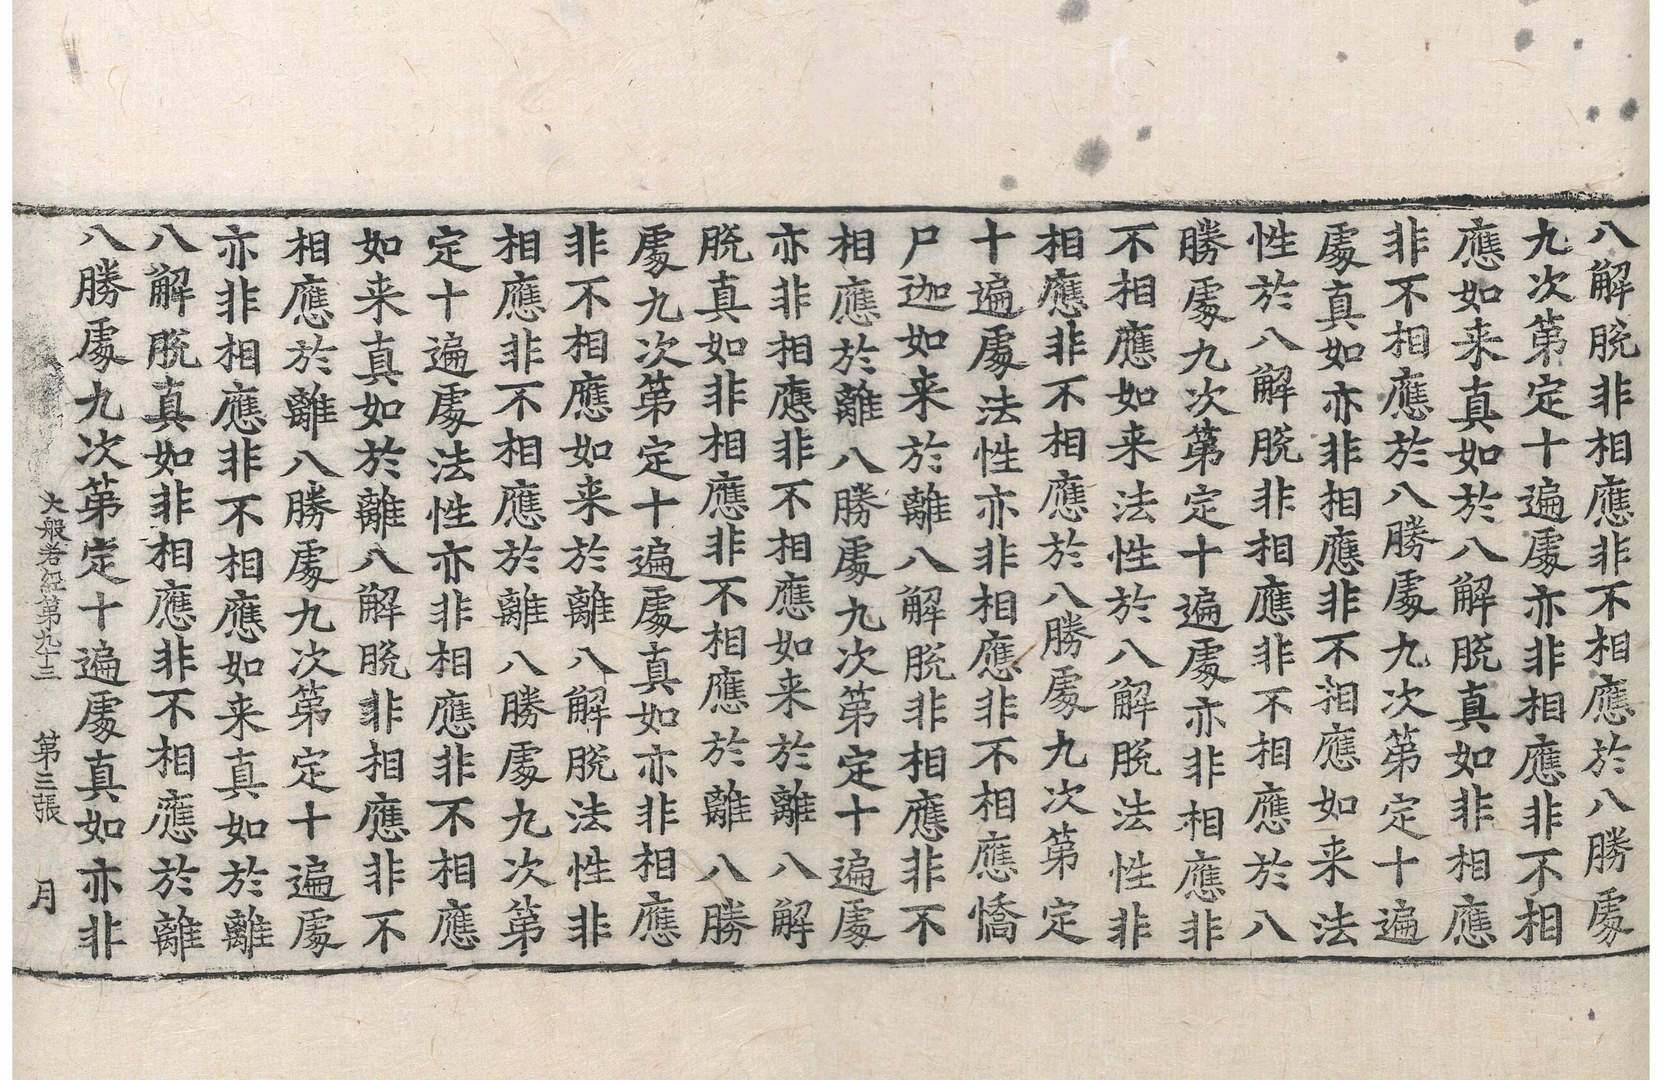 八解脫非相應非不相應於八勝處
九次第定十遍處亦非相應非不相
應如来真如於八解脫真如非相應
非不相應於八勝處九次第定十遍
處真如亦非相應非不相應如来法
性於八解脫非相應非不相應於八
勝處九次第定十遍處亦非相應非
不相應如来法性於八解脫法性非
相應非不相應於八勝處九次第定
十遍處法性亦非相應非不相應憍
尸迦如来於離八解脫非相應非不
相應於離八勝處九次第定十遍處
亦非相應非不相應如来於離八解
脫真如非相應非不相應於離八勝
處九次第定十遍處真如亦非相應
非不相應如来於離八解脫法性非
相應非不相應於離八勝處九次第
定十遍處法性亦非相應非不相應
如来真如於離八解脫非相應非不
相應於離八勝處九次第定十遍處
亦非相應非不相應如来真如於離
八解脫真如非相應非不相應於離
八勝處九次第定十遍處真如亦非
大般若經第九十三 第三張 月